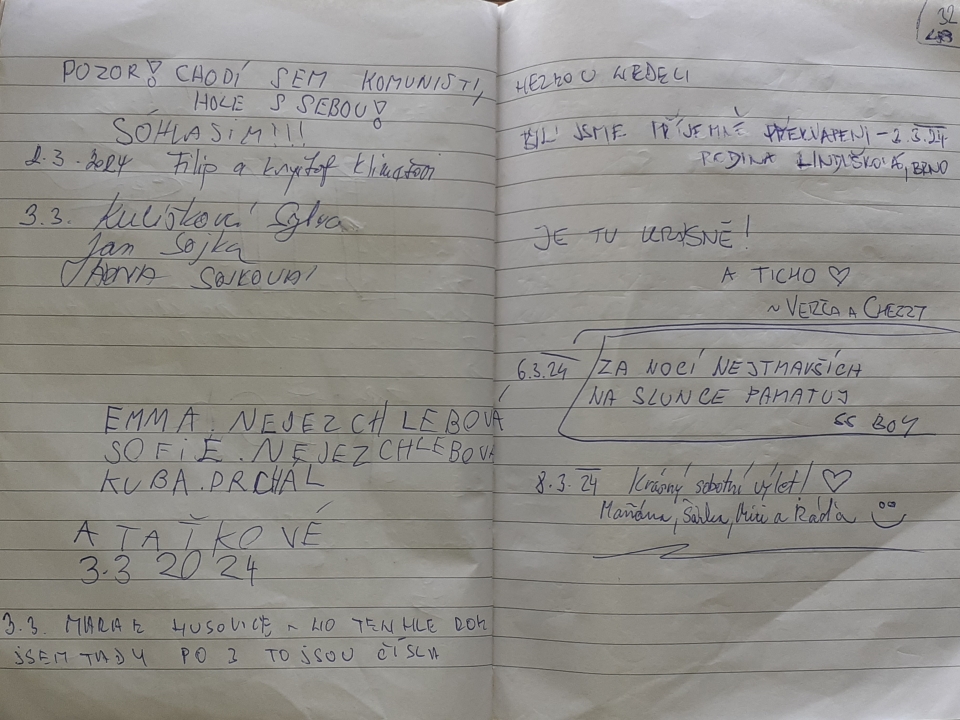 POZOR! CHODÍ SEM KOMUNISTI,
HOLE S SEBOU!
SOUHLASÍM!!!
2.3.2024 Filip a Kryštof
3.3. Kulíšková Sylva
Jan Sojka
JANA SOJKOVÁ
EMMA. NEJEZCHLEBOVÁ
SOFIE. NEJEZCHLEBOVÁ
KUBA. DRCHAL
A TAŤKOVÉ
3.3 2024
3.3. MARA Z HUSOVIC - NO TENHLE ROK
JSEM TADY PO 3 TO JSOU ČÍSLA
32
HEZKOU NEDELI
BYLI JSME PŘÍJEMNĚ PŘEKVAPENI - 2.3.24
RODINA, BRNO
JE TU KRÁSNĚ!
A TICHO ♡
~ VERČA A
6.3.24 ZA NOCÍ NEJTMAVŠÍCH
NA SLUNCE PAMATUJ
SS BOY
8.3.24 Krásný sobotní výlet! ♡
Maňána, Šárka, Miri a Ráďa